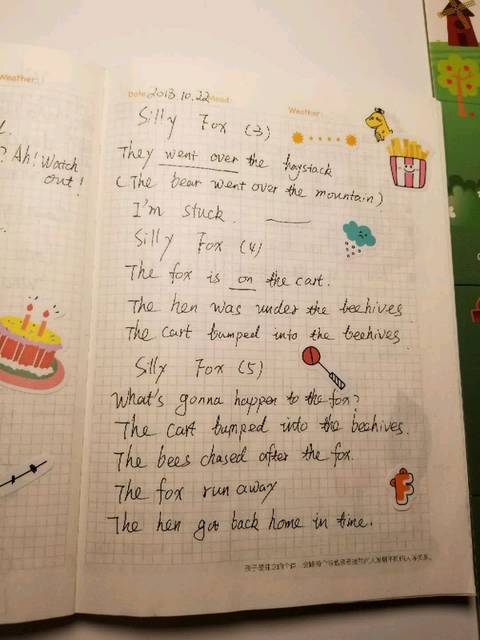 Weather:
t.
? Ah! Watch
out!
Date: 2013.10.22 Mood:
Weather:
Silly Fox (3)
They went over the haystack
(The bear went over the mountain)
I'm stuck.
Silly Fox (4)
The fox is on the cart.
The hen was under the beehives
The cart bumped into the beehives
Silly Fox (5)
What's gonna happen to the fox?
The cart bumped into the beehives.
The bees chased after the fox.
The fox run away
The hen got back home in time.
F